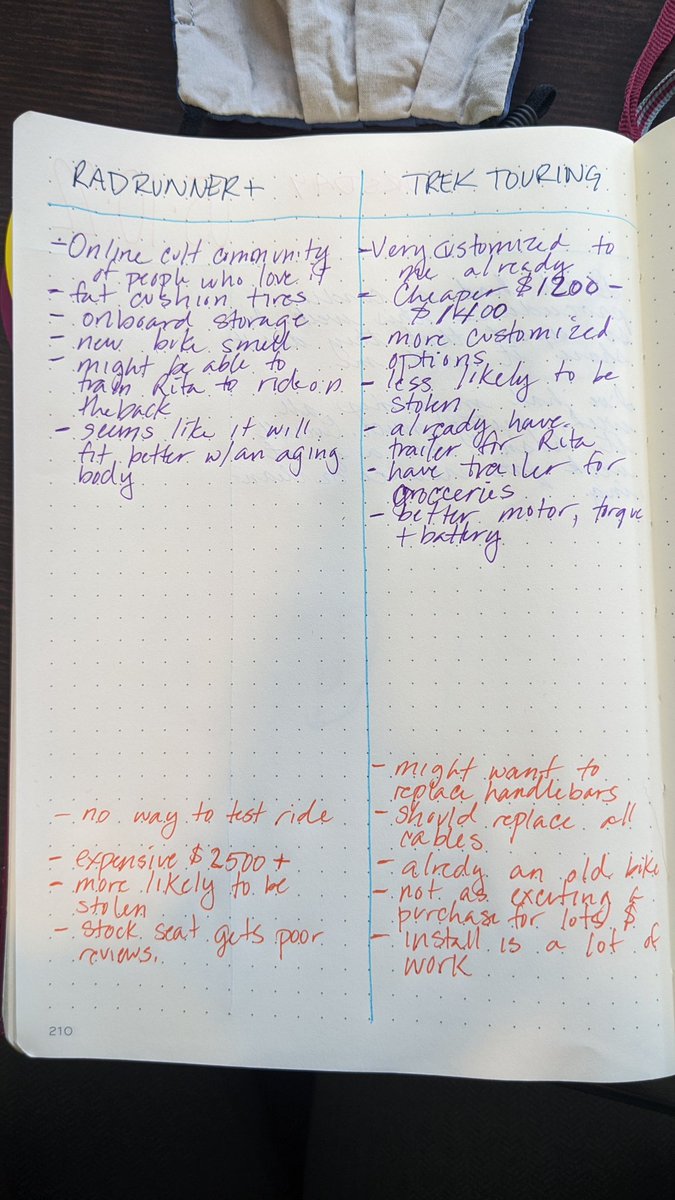 RADRUNNER+
- Online cult community
of people who love it
- fat cushion tires
- onboard storage
- new bike smell
- might be able to
train Rita to ride on
the back
- seems like it will
fit better w/an aging
body
- no way to test ride
- expensive $2500+
- more likely to be
stolen
- stock seat gets poor
reviews.
TREK TOURING
- Very customized to
me already
- Cheaper $1200 -
$1400
- more customized
options
- less likely to be
stolen
- already have
trailer for Rita
- have trailer for
groceries
- better motor, torque
+ battery
- might want to
replace handlebars
- should replace all
cables
- alredy an old bike
- not as exciting a
purchase for lots $
- install is a lot of
work
210